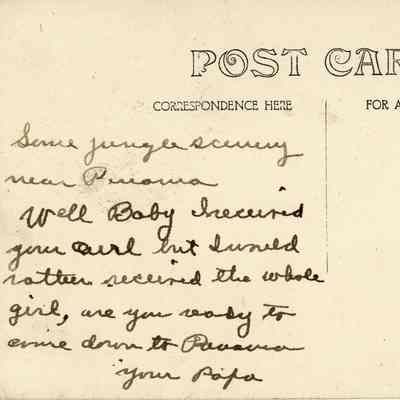 POST CAR
CORRESPONDENCE HERE
FOR A
Some jungle scenery
near Panama
Well Baby I received
your curl but I would
rather received the whole
girl, are you ready to
come down to Panama
your Papa